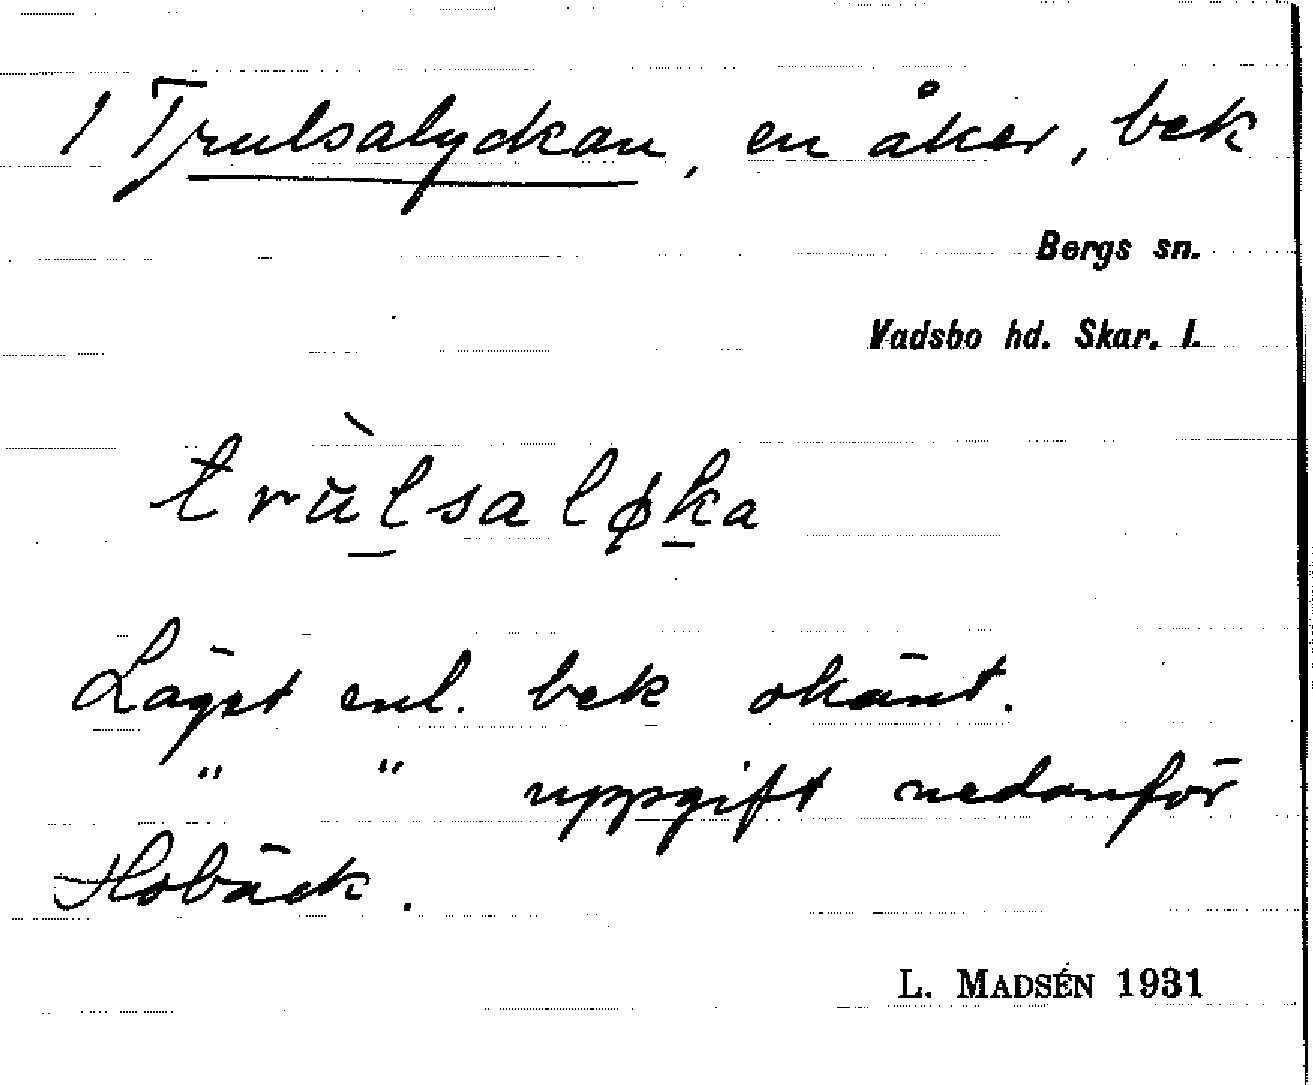 1 Trulsalyckan, en åker, bek
Bergs sn.
Vadsbo hd. Skar. l.
trùlsaløka
Läget enl. bek okänt.
" " uppgift nedanför
Hobäck.
L. MADSÉN 1931